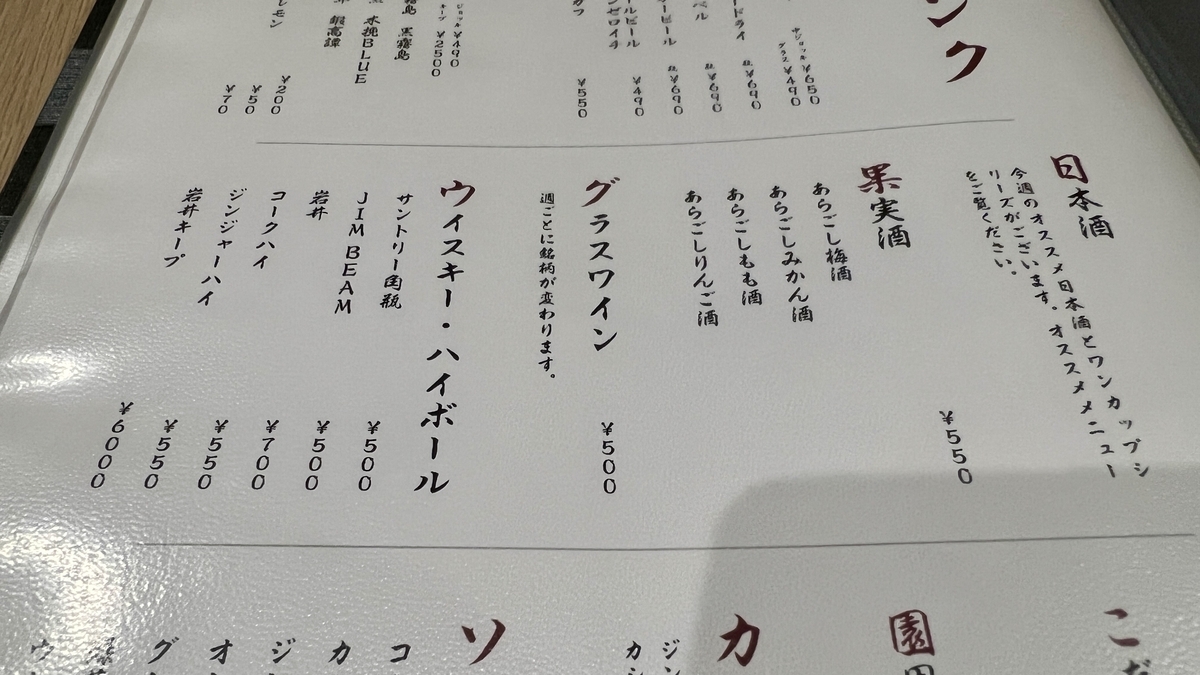 ンク
¥650
¥490
ードライ
¥690
ベル
¥690
¥690
¥490
¥550
¥490
¥2500
黒霧島
水挽BLUE
レモン
¥200
¥50
¥70
日本酒
今週のオススメ日本酒とワンカップシ
リーズがございます。オススメメニュー
をご覧ください。
果実酒
¥550
あらごし梅酒
あらごしみかん酒
あらごしもも酒
あらごしりんご酒
グラスワイン
¥500
週ごとに銘柄が変わります。
ウイスキー・ハイボール
サントリー角瓶
¥500
JIM BEAM
¥500
岩井
¥700
コークハイ
¥550
ジンジャーハイ
¥550
岩井キープ
¥6000
こだ
園
カ
ジン
カシ
ソ
コ
カ
ジ
オ
グ
ウ